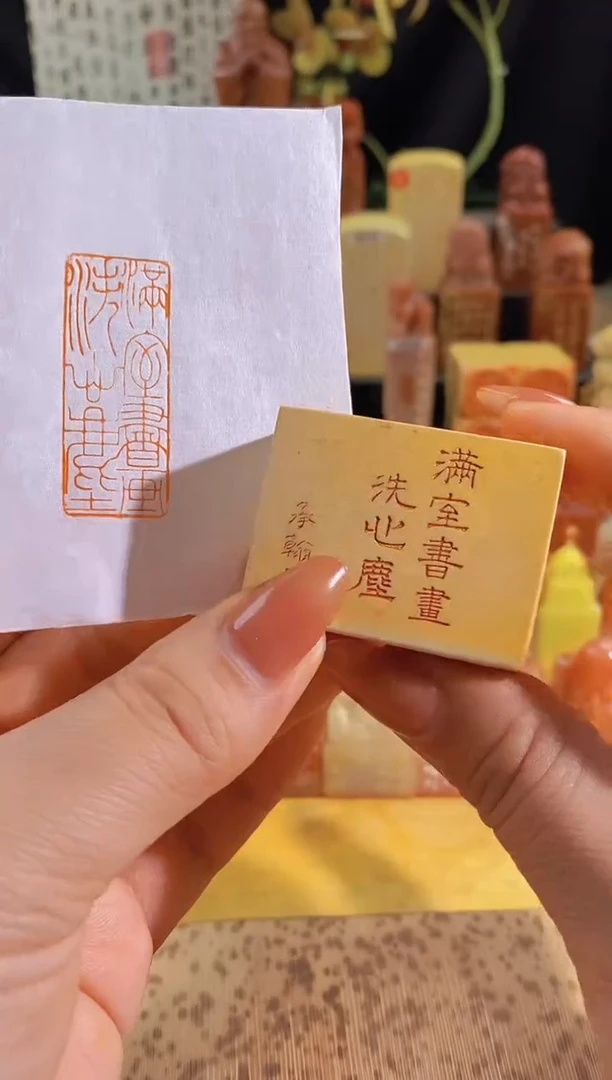 滿室書畫
洗心塵
承翰
滿室書畫
洗心塵